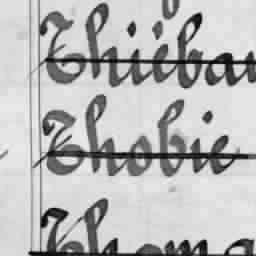 Thiébau
Thobie
Thoma